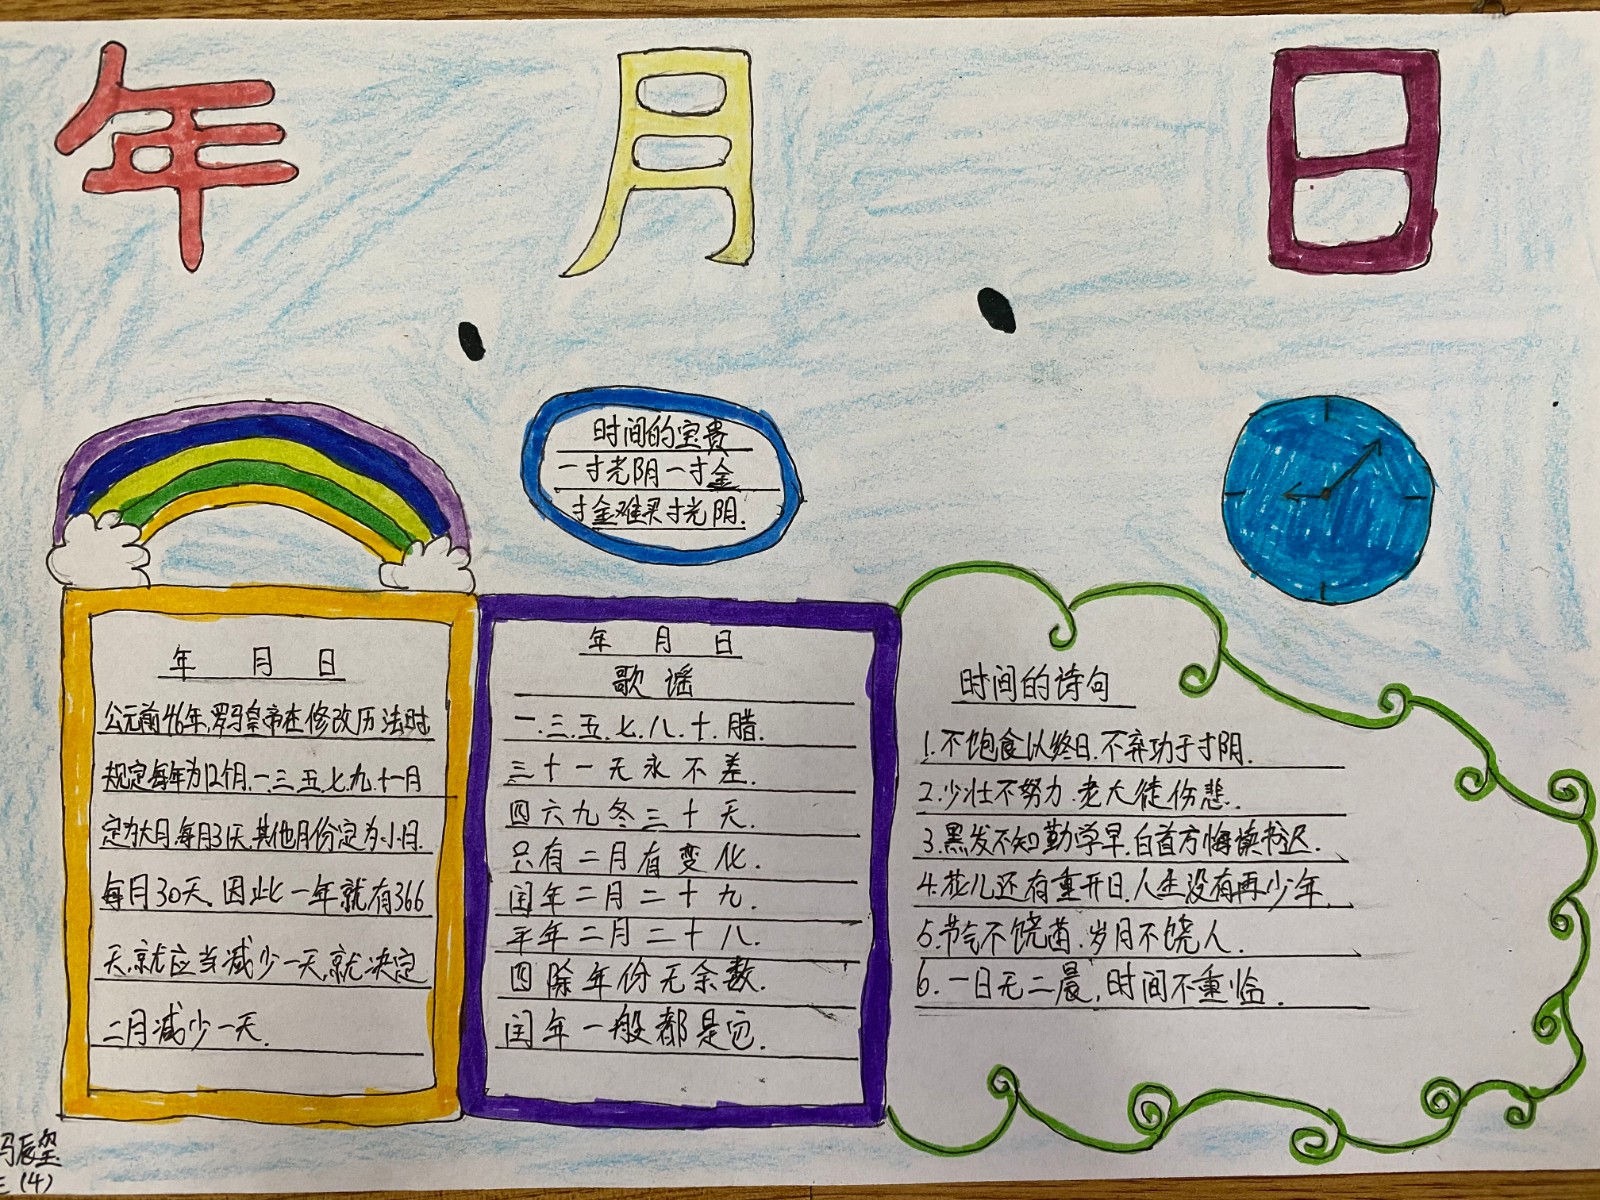 年 月 日
时间的宝贵
一寸光阴一寸金
寸金难买寸光阴.
年 月 日
公元前46年,罗马皇帝在修改历法时,
规定每年为12个月.一.三.五.七.九.十一月
定为大月,每月31天.其他月份定为小月.
每月30天.因此一年就有366
天,就应当减少一天,就决定
二月减少一天.
年 月 日
歌谣
一.三.五.七.八.十.腊.
三十一天永不差.
四六九冬三十天.
只有二月有变化.
闰年二月二十九.
平年二月二十八.
四除年份无余数.
闰年一般都是它.
时间的诗句
1.不饱食以终日.不弃功于寸阴.
2.少壮不努力.老大徒伤悲.
3.黑发不知勤学早.白首方悔读书迟.
4.花儿还有重开日.人生没有再少年.
5.节气不饶苗.岁月不饶人.
6.一日无二晨,时间不重临.
三(4)